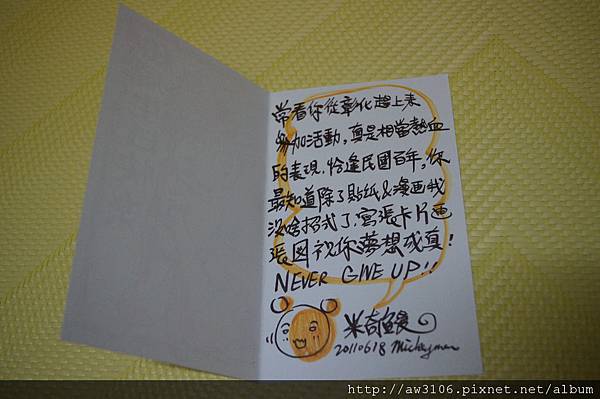 常看你從彰化趕上來
參加活動，真是相當熱血
的表現，恰逢民國百年，你
最知道除了貼紙&漫画我
沒啥招式了，寫張卡片画
張図祝你夢想成真！
NEVER GIVE UP!!
米奇鰻
20110618 Mickeyman
http://aw3106.pixnet.net/album